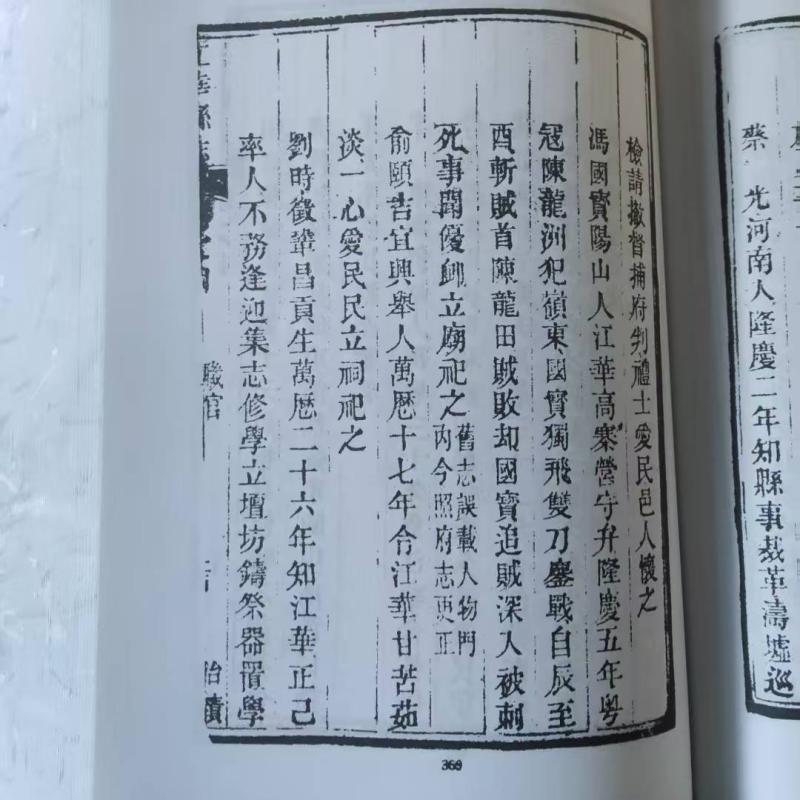 蔡 光河南人隆慶二年知縣事裁革濤墟巡
檢請撤督捕府判禮士愛民邑人懷之
馮國寳陽山人江華高寨營守弁隆慶五年粤
冦陳龍洲犯嶺東國寳獨飛雙刀鏖戰自辰至
酉斬賊首陳龍田賊敗却國寳追賊深入被刺
死事聞優䘏立廟祀之舊志誤載人物門
内今照府志更正
俞頤吉宜興舉人萬厯十七年令江華甘苦茹
淡一心愛民民立祠祀之
劉時徵鞏昌貢生萬厯二十六年知江華正己
率人不務逢迎集志修學立壇坊鑄祭器置學
華縣志
職官
治績
369